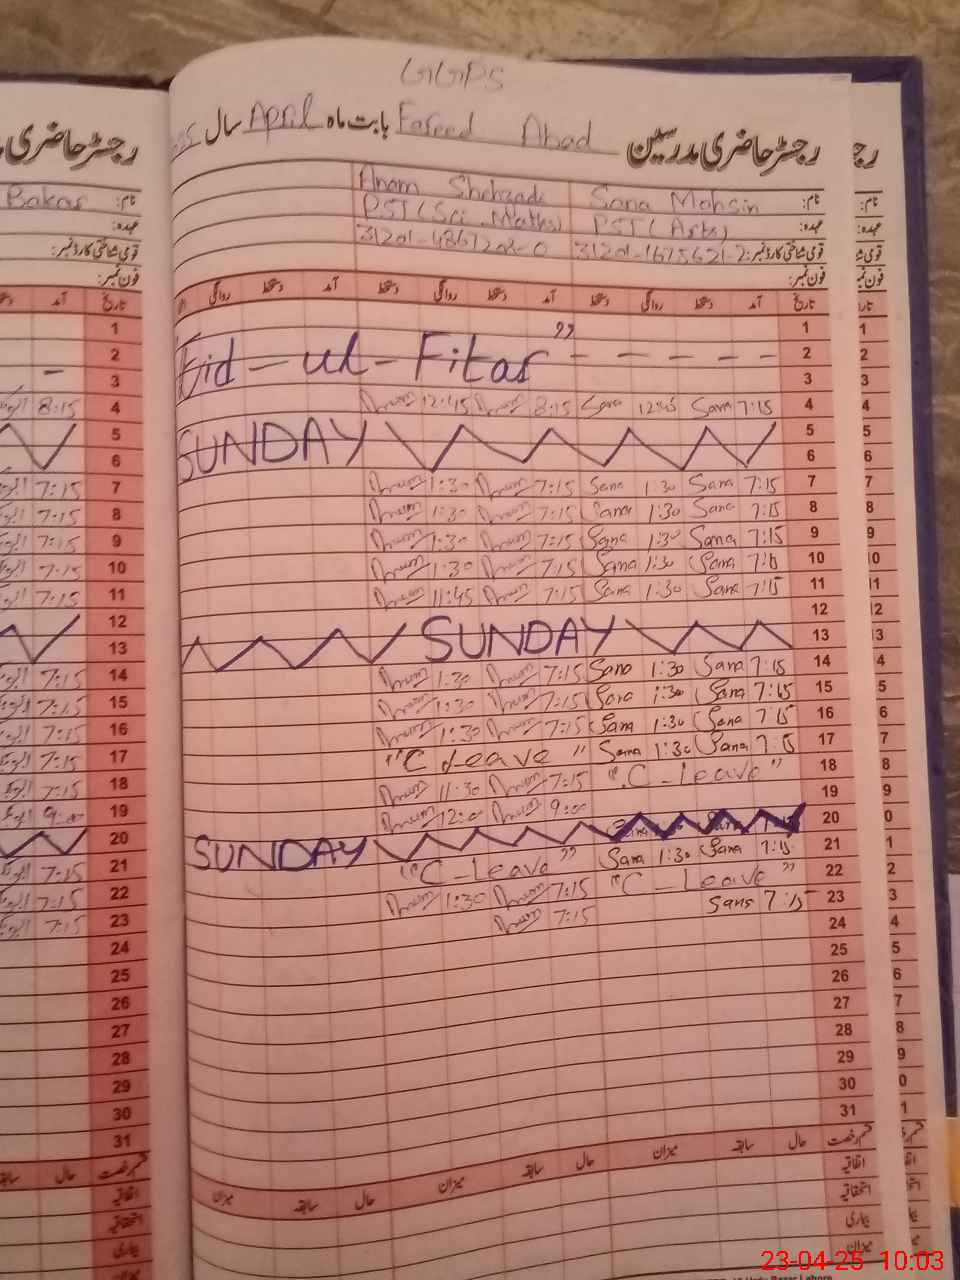 GGPS
رجسٹر حاضری مدرسین Fareed Abad بابت ماہ April سال
نام: Sana Mohsin Anam Shahzadi
عہدہ: PST (Arts) PST (Sci Maths)
قومی شناختی کارڈ نمبر: 31201-1675621-2 31201-4867202-0
فون نمبر:
تاریخ آمد دستخط روانگی دستخط آمد دستخط روانگی دستخط آمد دستخط روانگی
1
2 Eid-ul-Fitar"
3
4 7:15 Sana 12:45 Sana 8:15 12:45
5 SUNDAY
6
7 7:15 Sana 1:30 Sana 7:15 1:30
8 7:15 Sana 1:30 Sana 7:15 1:30
9 7:15 Sana 1:30 Sana 7:15 1:30
10 7:15 Sana 1:30 Sana 7:15 1:30
11 7:15 Sana 1:30 Sana 7:15 11:45
12
13 SUNDAY
14 7:15 Sana 1:30 Sana 7:15 1:30
15 7:15 Sana 1:30 Sana 7:15 1:30
16 7:15 Sana 1:30 Sana 7:15 1:30
17 7:15 Sana 1:30 Sana "C Leave"
18 "C-Leave" 7:15 11:30
19 9:00 12:00
20 SUNDAY
21 7:15 Sana 1:30 Sana "C-Leave"
22 "C-Leave" 7:15 1:30
23 7:15 Sana 7:15
24
25
26
27
28
29
30
31
قسم رخصت حال سابقہ میزان حال سابقہ میزان حال سابقہ میزان
اتفاقیہ
استحقاقیہ
بیماری
میزان
Bakar
8:15
7:15
7:15
7:15
7:15
7:15
7:15
7:15
7:15
7:15
7:15
9:00
7:15
7:15
7:15
23-04-25 10:03